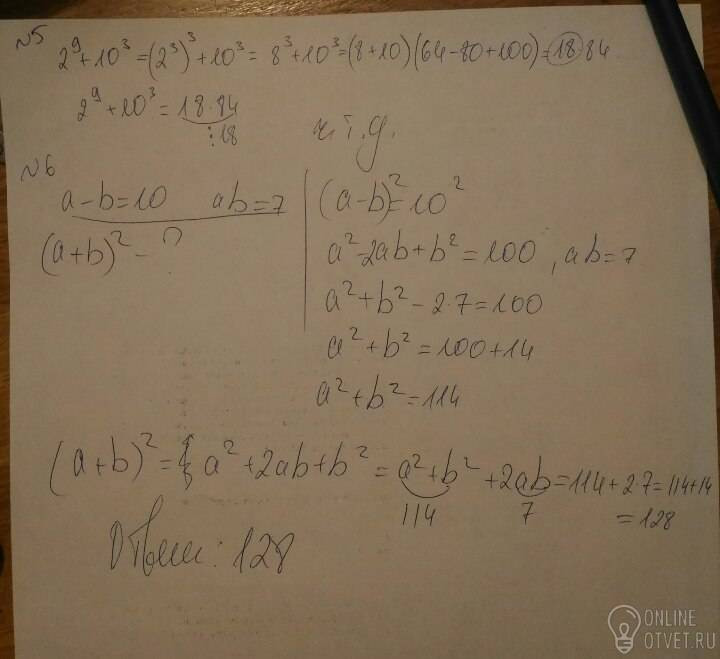 №5
2⁹+10³=(2³)³+10³= 8³+10³=(8+10)(64-80+100)=18·84
2⁹+10³=18·84
⋮18
ч.т.д.
№6
a-b=10 ab=7
(a+b)²-?
(a-b)²=10²
a²-2ab+b²=100, ab=7
a²+b²-2·7=100
a²+b²=100+14
a²+b²=114
(a+b)²= a²+2ab+b²= a²+b²+2ab=114+2·7=114+14
114 7 =128
Ответ: 128
ONLINE
OTVET.RU